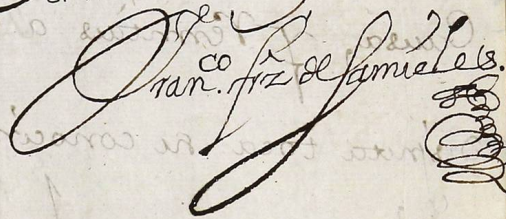 Fran.co frz de Samieleis.